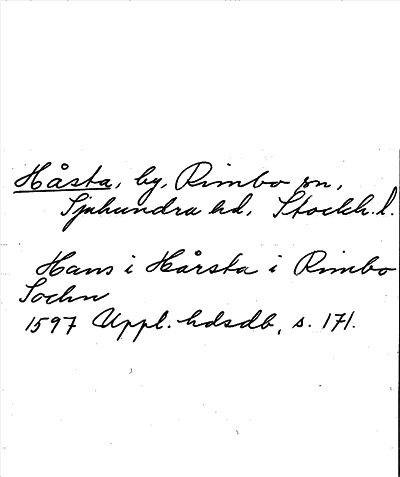 Håsta, by, Rimbo sn,
Sjuhundra hd, Stockh. l.
Hans i Hårsta i Rimbo
Sochn
1597 Uppl. hdsdb, s. 171.